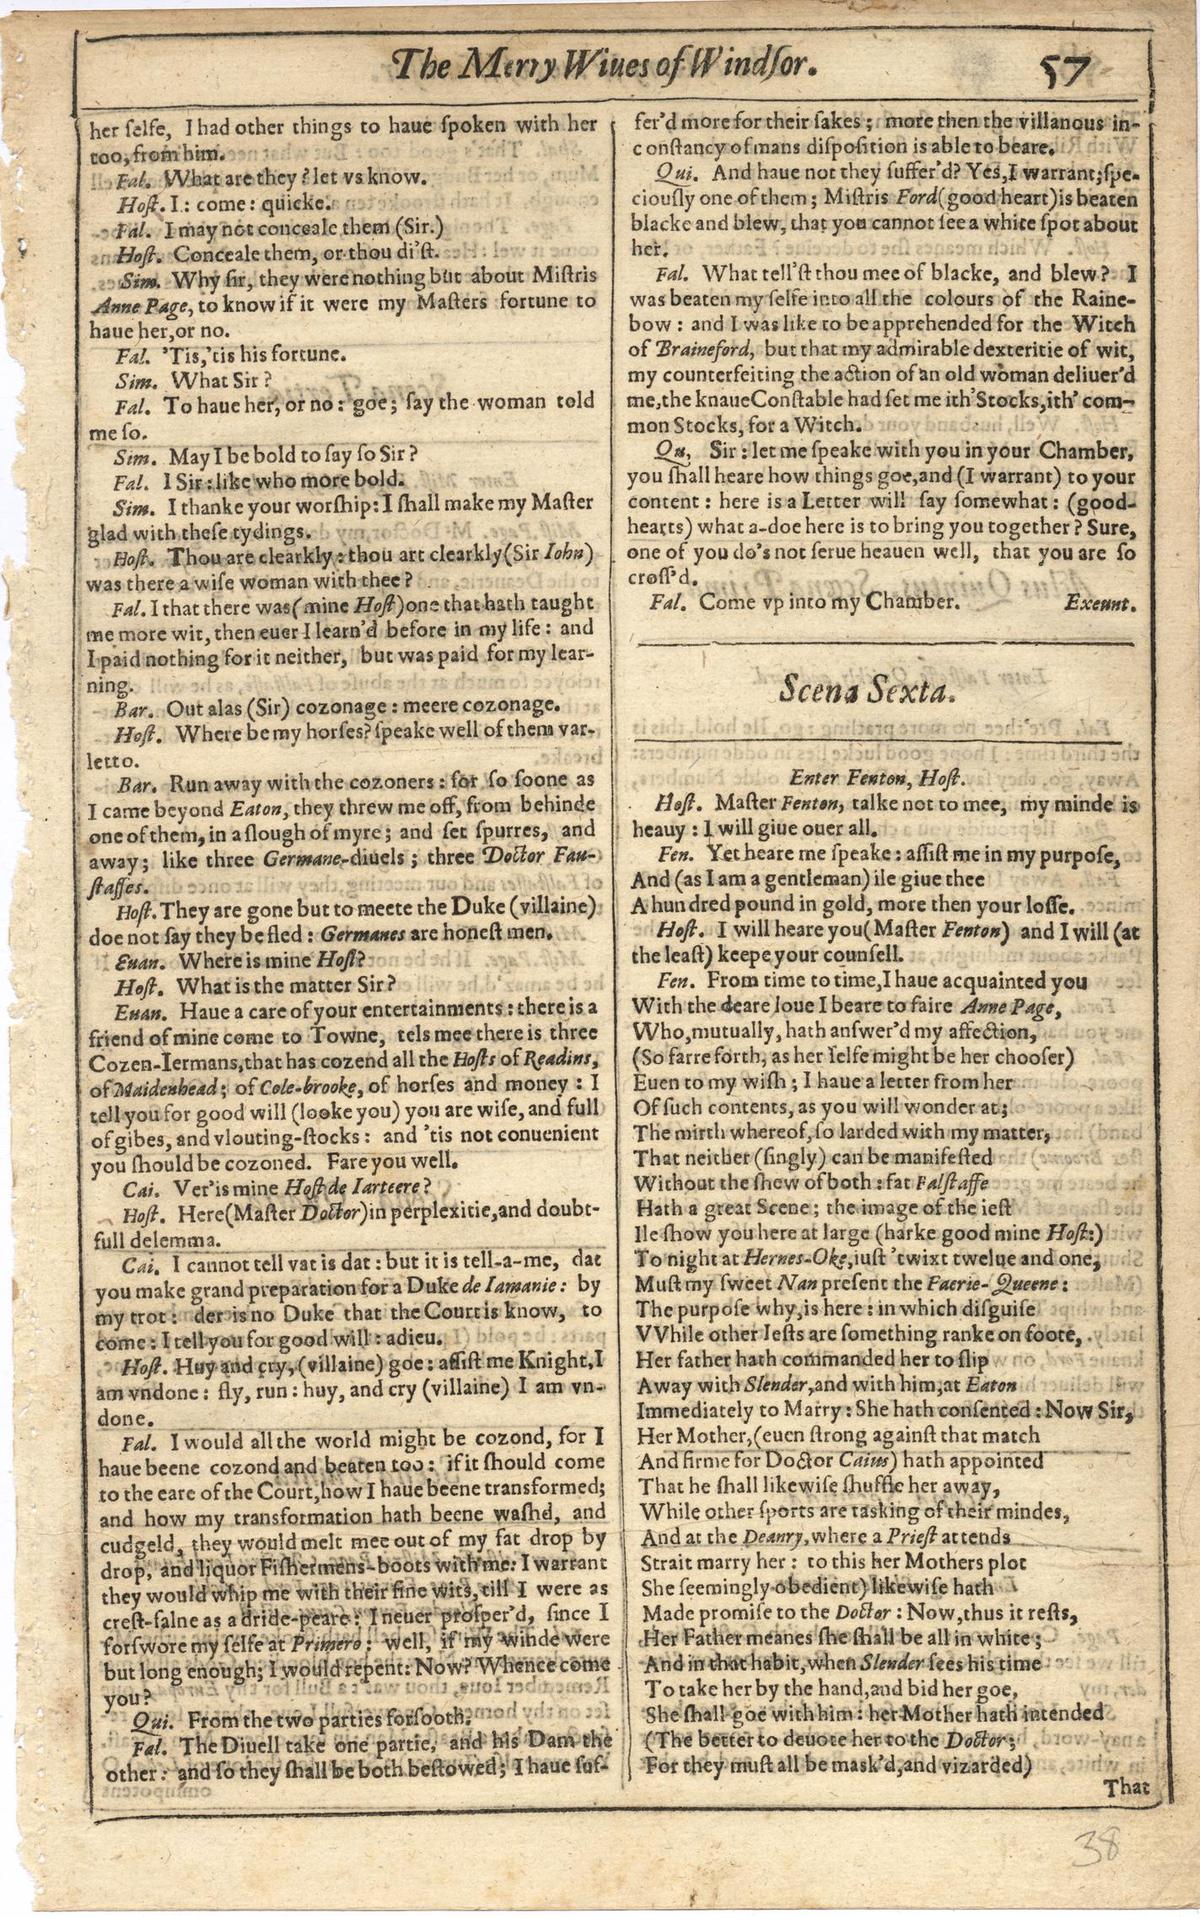 The Merry Wiues of Windſor. 57
her ſelfe, I had other things to haue ſpoken with her
too, from him.
Fal. What are they? let vs know.
Hoſt. I: come: quicke.
Fal. I may not conceale them (Sir.)
Hoſt. Conceale them, or thou di'ſt.
Sim. Why ſir, they were nothing but about Miſtris
Anne Page, to know if it were my Maſters fortune to
haue her, or no.
Fal. 'Tis, 'tis his fortune.
Sim. What Sir?
Fal. To haue her, or no: goe; ſay the woman told
me ſo.
Sim. May I be bold to ſay ſo Sir?
Fal. I Sir: like who more bold.
Sim. I thanke your worſhip: I ſhall make my Maſter
glad with theſe tydings.
Hoſt. Thou are clearkly: thou art clearkly (Sir Iohn)
was there a wiſe woman with thee?
Fal. I that there was (mine Hoſt) one that hath taught
me more wit, then euer I learn'd before in my life: and
I paid nothing for it neither, but was paid for my lear-
ning.
Bar. Out alas (Sir) cozonage: meere cozonage.
Hoſt. Where be my horſes? ſpeake well of them var-
letto.
Bar. Run away with the cozoners: for ſo ſoone as
I came beyond Eaton, they threw me off, from behinde
one of them, in a ſlough of myre; and ſet ſpurres, and
away; like three Germane-diuels; three Doctor Fau-
ſtaſſes.
Hoſt. They are gone but to meete the Duke (villaine)
doe not ſay they be fled: Germanes are honeſt men.
Euan. Where is mine Hoſt?
Hoſt. What is the matter Sir?
Euan. Haue a care of your entertainments: there is a
friend of mine come to Towne, tels mee there is three
Cozen-Iermans, that has cozend all the Hoſts of Readins,
of Maidenhead; of Cole-brooke, of horſes and money: I
tell you for good will (looke you) you are wiſe, and full
of gibes, and vlouting-ſtocks: and 'tis not conuenient
you ſhould be cozoned. Fare you well.
Cai. Ver'is mine Hoſt de Iarteere?
Hoſt. Here (Maſter Doctor) in perplexitie, and doubt-
full delemma.
Cai. I cannot tell vat is dat: but it is tell-a-me, dat
you make grand preparation for a Duke de Iamanie: by
my trot: der is no Duke that the Court is know, to
come: I tell you for good will: adieu.
Hoſt. Huy and cry, (villaine) goe: aſſiſt me Knight, I
am vndone: fly, run: huy, and cry (villaine) I am vn-
done.
Fal. I would all the world might be cozond, for I
haue beene cozond and beaten too: if it ſhould come
to the eare of the Court, how I haue beene transformed;
and how my transformation hath beene waſhd, and
cudgeld, they would melt mee out of my fat drop by
drop, and liquor Fiſhermens-boots with me: I warrant
they would whip me with their fine wits, till I were as
creſt-falne as a dride-peare: I neuer proſper'd, ſince I
forſwore my ſelfe at Primero: well, if my winde were
but long enough; I would repent: Now? Whence come
you?
Qui. From the two parties forſooth.
Fal. The Diuell take one partie, and his Dam the
other: and ſo they ſhall be both beſtowed; I haue ſuf-
fer'd more for their ſakes; more then the villanous in-
conſtancy of mans diſpoſition is able to beare.
Qui. And haue not they ſuffer'd? Yes, I warrant; ſpe-
ciouſly one of them; Miſtris Ford (good heart) is beaten
blacke and blew, that you cannot ſee a white ſpot about
her.
Fal. What tell'ſt thou mee of blacke, and blew? I
was beaten my ſelfe into all the colours of the Raine-
bow: and I was like to be apprehended for the Witch
of Braineford, but that my admirable dexteritie of wit,
my counterfeiting the action of an old woman deliuer'd
me, the knaue Conſtable had ſet me ith'Stocks, ith' com-
mon Stocks, for a Witch.
Qu, Sir: let me ſpeake with you in your Chamber,
you ſhall heare how things goe, and (I warrant) to your
content: here is a Letter will ſay ſomewhat: (good-
hearts) what a-doe here is to bring you together? Sure,
one of you do's not ſerue heauen well, that you are ſo
croſſ'd.
Fal. Come vp into my Chamber. Exeunt.
Scena Sexta.
Enter Fenton, Hoſt.
Hoſt. Maſter Fenton, talke not to mee, my minde is
heauy: I will giue ouer all.
Fen. Yet heare me ſpeake: aſſiſt me in my purpoſe,
And (as I am a gentleman) ile giue thee
A hundred pound in gold, more then your loſſe.
Hoſt. I will heare you (Maſter Fenton) and I will (at
the leaſt) keepe your counſell.
Fen. From time to time, I haue acquainted you
With the deare loue I beare to faire Anne Page,
Who, mutually, hath anſwer'd my affection,
(So farre forth, as her ſelfe might be her chooſer)
Euen to my wiſh; I haue a letter from her
Of ſuch contents, as you will wonder at;
The mirth whereof, ſo larded with my matter,
That neither (ſingly) can be manifeſted
Without the ſhew of both: fat Falſtaffe
Hath a great Scene; the image of the ieſt
Ile ſhow you here at large (harke good mine Hoſt:)
To night at Hernes-Oke, iuſt 'twixt twelue and one,
Muſt my ſweet Nan preſent the Faerie-Queene:
The purpoſe why, is here: in which diſguiſe
VVhile other Ieſts are ſomething ranke on foote,
Her father hath commanded her to ſlip
Away with Slender, and with him, at Eaton
Immediately to Marry: She hath conſented: Now Sir,
Her Mother, (euen ſtrong againſt that match
And firme for Doctor Caius) hath appointed
That he ſhall likewiſe ſhuffle her away,
While other ſports are tasking of their mindes,
And at the Deanry, where a Prieſt attends
Strait marry her: to this her Mothers plot
She ſeemingly obedient) likewiſe hath
Made promiſe to the Doctor: Now, thus it reſts,
Her Father meanes ſhe ſhall be all in white;
And in that habit, when Slender ſees his time
To take her by the hand, and bid her goe,
She ſhall goe with him: her Mother hath intended
(The better to deuote her to the Doctor;
For they muſt all be mask'd, and vizarded)
That
38